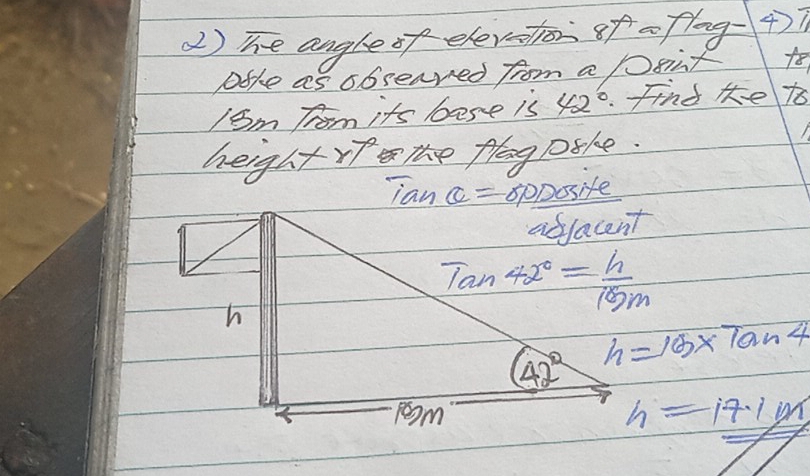 2) The angle of elevation of a flag-
pole as observed from a point
19m from its base is 42°. Find the
height of the flag pole.
Tan θ = opposite
adjacent
Tan 42° = h
19m
h
42°
19m
h = 19 x Tan 4
h = 17.1 m
4)